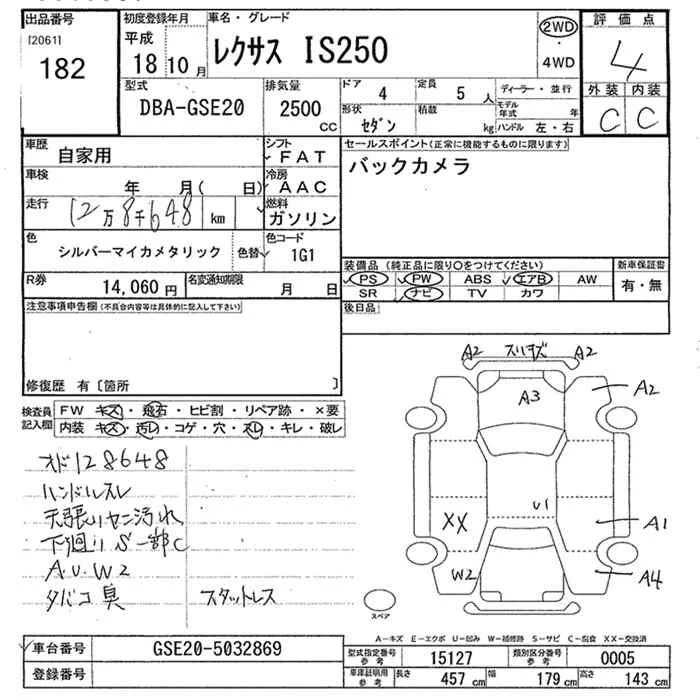 出品番号
[2061]
182
初度登録年月
平成
18 10 月
車名・グレード
レクサス IS250
2WD
・
4WD
評価点
4
外装 内装
C C
型式
DBA-GSE20
排気量
2500
CC
ドア
4
定員
5 人
ディーラー・並行
モデル年式 年
形状
セダン
積載
kg
ハンドル 左・右
車歴
自家用
シフト
FAT
車検
年 月( 日)
冷房
AAC
走行
12万8千648 km
燃料
ガソリン
色
シルバーマイカメタリック
色替
色コード
1G1
R券
14,060 円
名変通知期限
月 日
セールスポイント(正常に機能するものに限ります)
バックカメラ
装備品 (純正品に限り○をつけてください)
PS PW ABS エアB AW
SR ナビ TV カワ
新車保証書
有・無
後日品
注意事項申告欄(不具合内容等は具体的に記入して下さい)
修復歴 有〔箇所 〕
検査員記入欄
FW キズ・飛石・ヒビ割・リペア跡・×要
内装 キズ・汚レ・コゲ・穴・スレ・キレ・破レ
オド128648
ハンドルスレ
天張りヤニ汚れ
下廻りS一部C
A.U.W2
タバコ臭 スタットレス
A2 スリキズ A2
A3
A2
U1
XX
A1
W2
A4
スペア
A―キズ E―エクボ U―凹み W―補修跡 S―サビ C―腐食 XX―交換済
車台番号
GSE20-5032869
登録番号
型式指定番号
参考
15127
類別区分番号
参考
0005
車庫証明用
参考
長さ
457 cm
幅
179 cm
高さ
143 cm